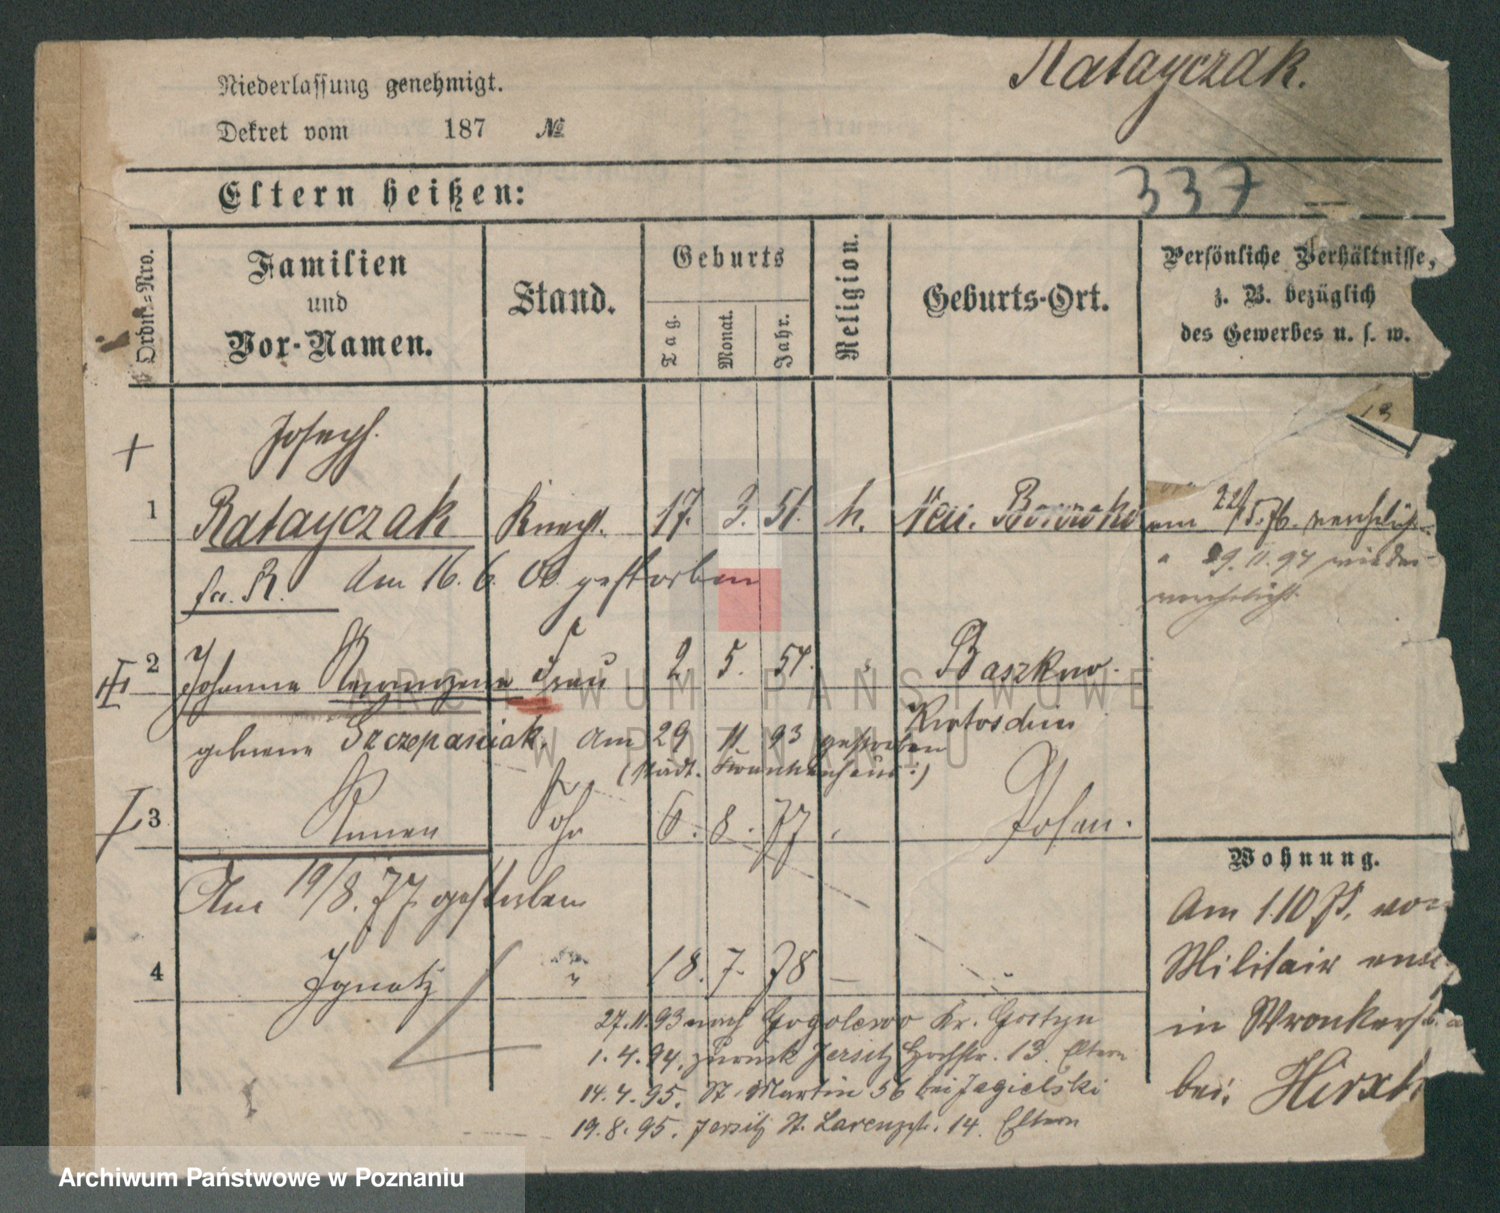 Ratayczak.
Niederlassung genehmigt.
Dekret vom 187 №
337
Eltern heißen:
Ordn.-Nro.
Familien und Vor-Namen.
Stand.
Geburts
Tag.
Monat.
Jahr.
Religion.
Geburts-Ort.
Persönliche Verhältnisse,
z. B. bezüglich
des Gewerbes u. s. w.
13
Joseph
1 Ratayczak Knecht 17. 3. 51. k. Neu. am 22/5.76. verehelicht
29.11.94 wieder
verehelicht
fr. K. Am 16. 6. 00 gestorben
2 Johanna Frau 2 5. 51. " Baszkow.
Krotoschin
geborene Szczepaniak. Am 29 11. 93 gestorben
(städt. Krankenhaus.)
3 6. 8. 77 Posen.
Am 19/8. 77 gestorben
4 Ignatz " 18. 7. 78
Wohnung.
Am 1.10 75. vom
Militair
in Wronkerstr.
bei: Hirsch
27.11.93 nach Gogolewo Kr. Gostyn
1.4.94. zurück Jersitz Hochstr. 13. Eltern
14.4.95. St. Martin 56 bei Jagielski
19.8.95. Jersitz St. Lorenzstr. 14. Eltern
ARCHIWUM PAŃSTWOWE
W POZNANIU
Archiwum Państwowe w Poznaniu